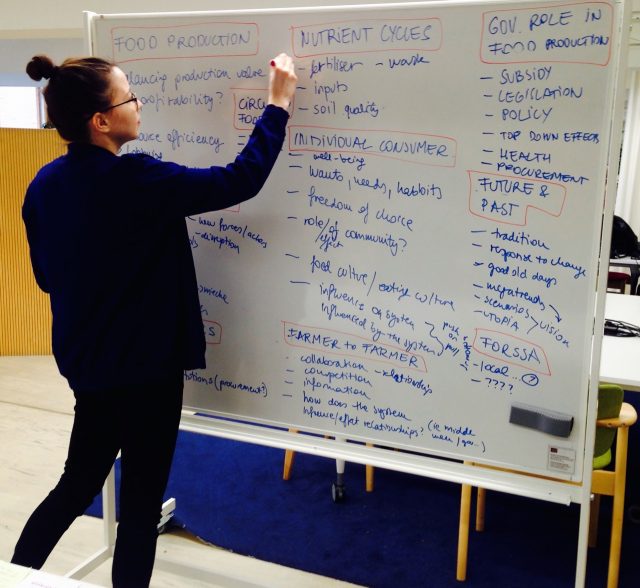 FOOD PRODUCTION
production value
profitability?
efficiency
CIRCU
FOO
new forces/actors
-disruption
S
(procurement?)
NUTRIENT CYCLES
— fertiliser — waste
— inputs
— soil quality
INDIVIDUAL CONSUMER
— well-being
— wants, needs, habbits
— freedom of choice
— role/of community?
effect
— food culture/ eating culture
— influence on system
influenced by the system
push
or
pull
FARMER TO FARMER
collaboration -relationships
— competition
— information
— how does the system
influence/effect relationships? (ie middle
men/gov..)
GOV. ROLE IN
FOOD PRODUCTION
— SUBSIDY
— LEGISLATION
— POLICY
— TOP DOWN EFFECTS
— HEALTH
— PROCUREMENT
FUTURE &
PAST
— tradition
— response to change
— good old days
— megatrends
— scenarios
— UTOPIA
VISION
FORSSA
— local... ?
— ????